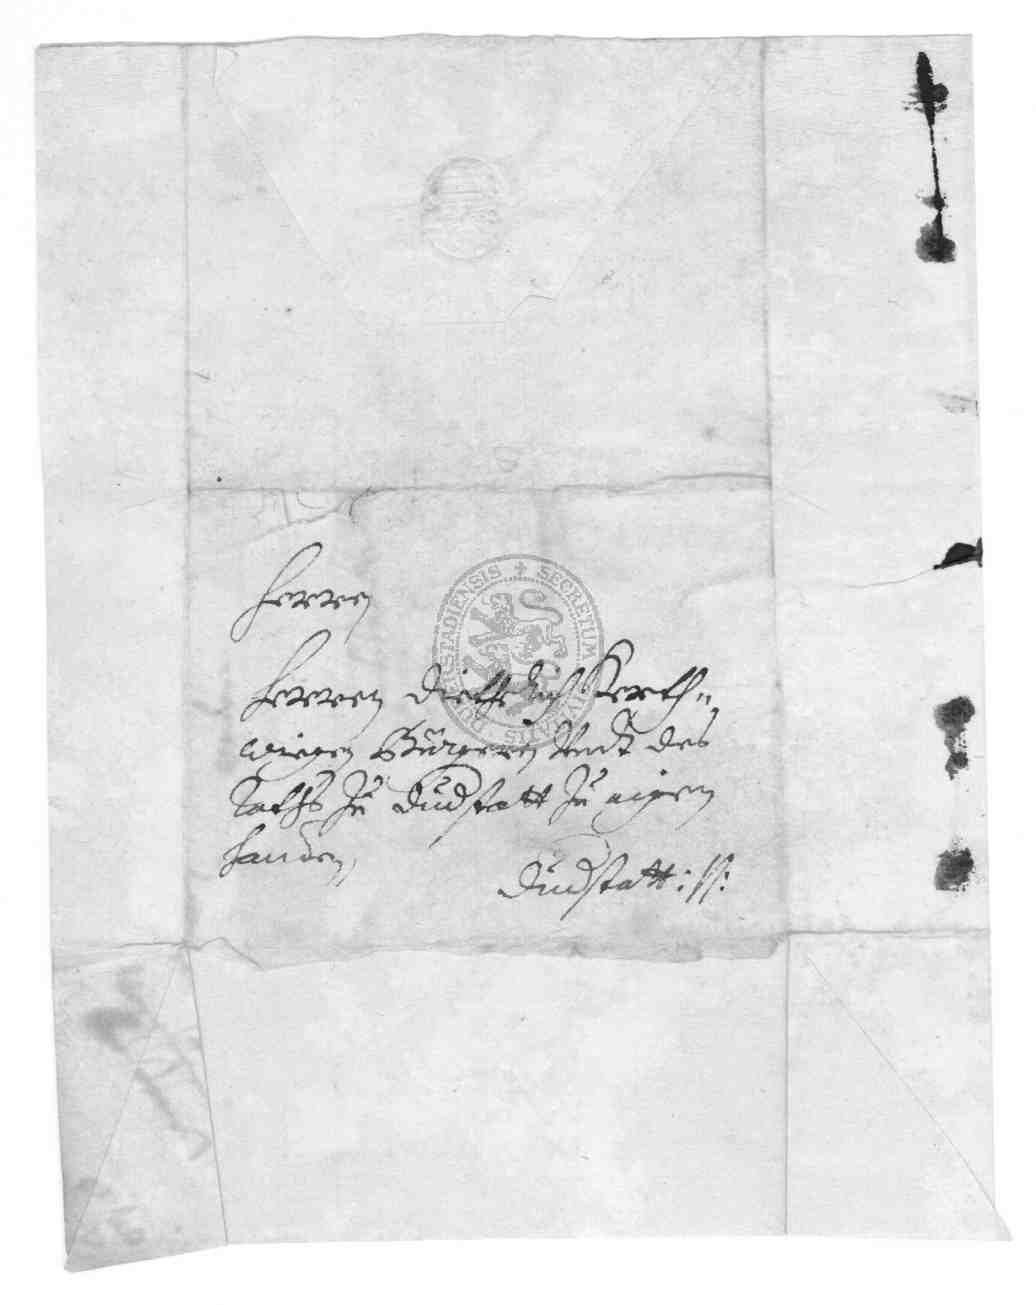 Herren
Herren Dietherich Kerth„
wiegen Bürgeren Undt des
Raths Zu Dudstatt Zu eigen
handen,
Dudstatt : ss :
SECRETUM CIVITATIS DUDERSTADIENSIS